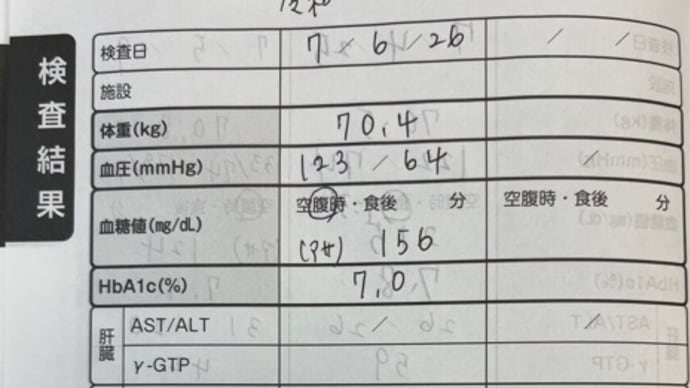 令和
検査結果
検査日 7/6/26 / /
施設
体重(kg) 70.4
血圧(mmHg) 123/64 /
空腹時・食後 分 空腹時・食後 分
血糖値(mg/dL) (アサ) 156
HbA1c(%) 7.0
肝臓
AST/ALT / /
γ-GTP